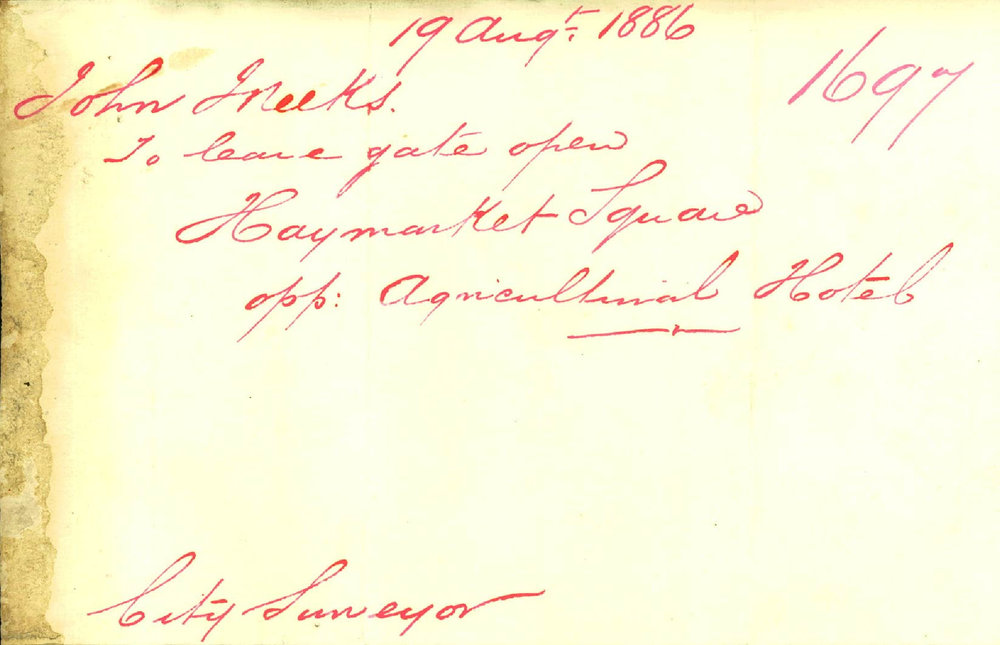 19 Augt. 1886
1697
John Meeks.
To leave gate open
Haymarket Square
opp: Agricultural Hotel
City Surveyor